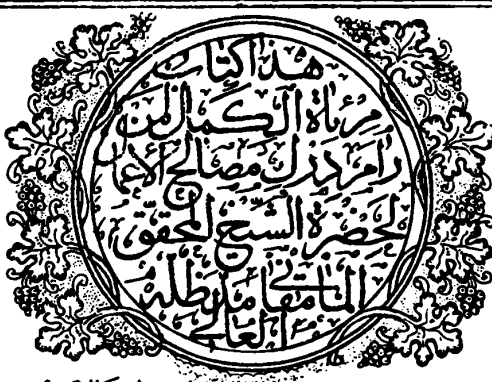 هذا كتاب
مرءاة الكمال لمن
رام درك مصالح الأعمال
لحضرة الشيخ المحقق
المامقاني مد ظله
العالي